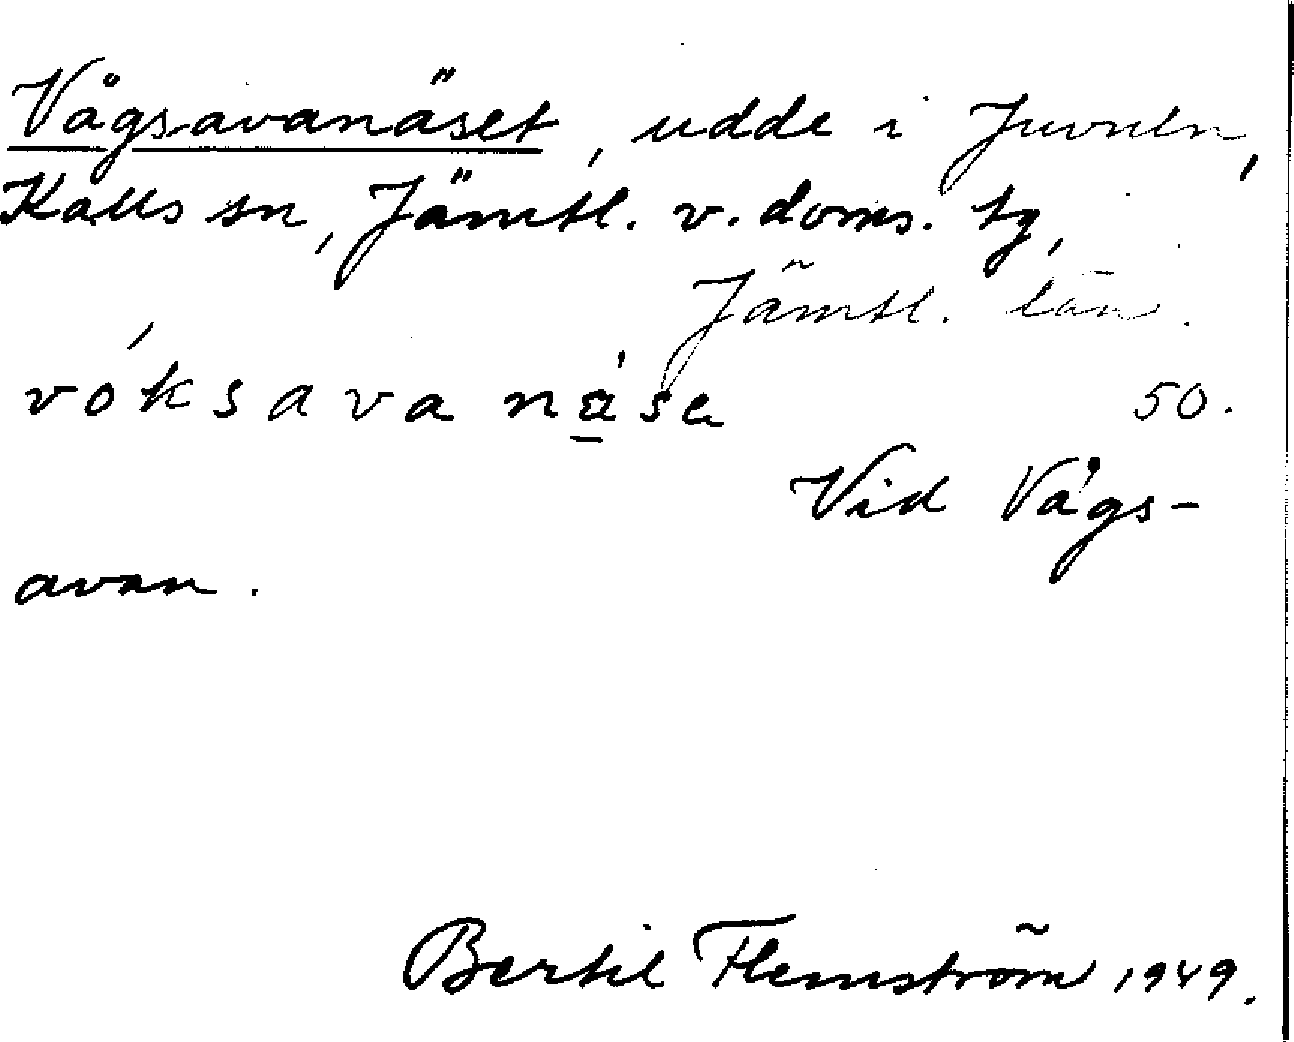 Vågsavanäset, udde i Juvuln,
Kalls sn, Jämtl. v. doms. tg,
Jämtl. län.
vóksavanása 50.
Vid Vågs-
avan.
Bertil Flemström 1949.